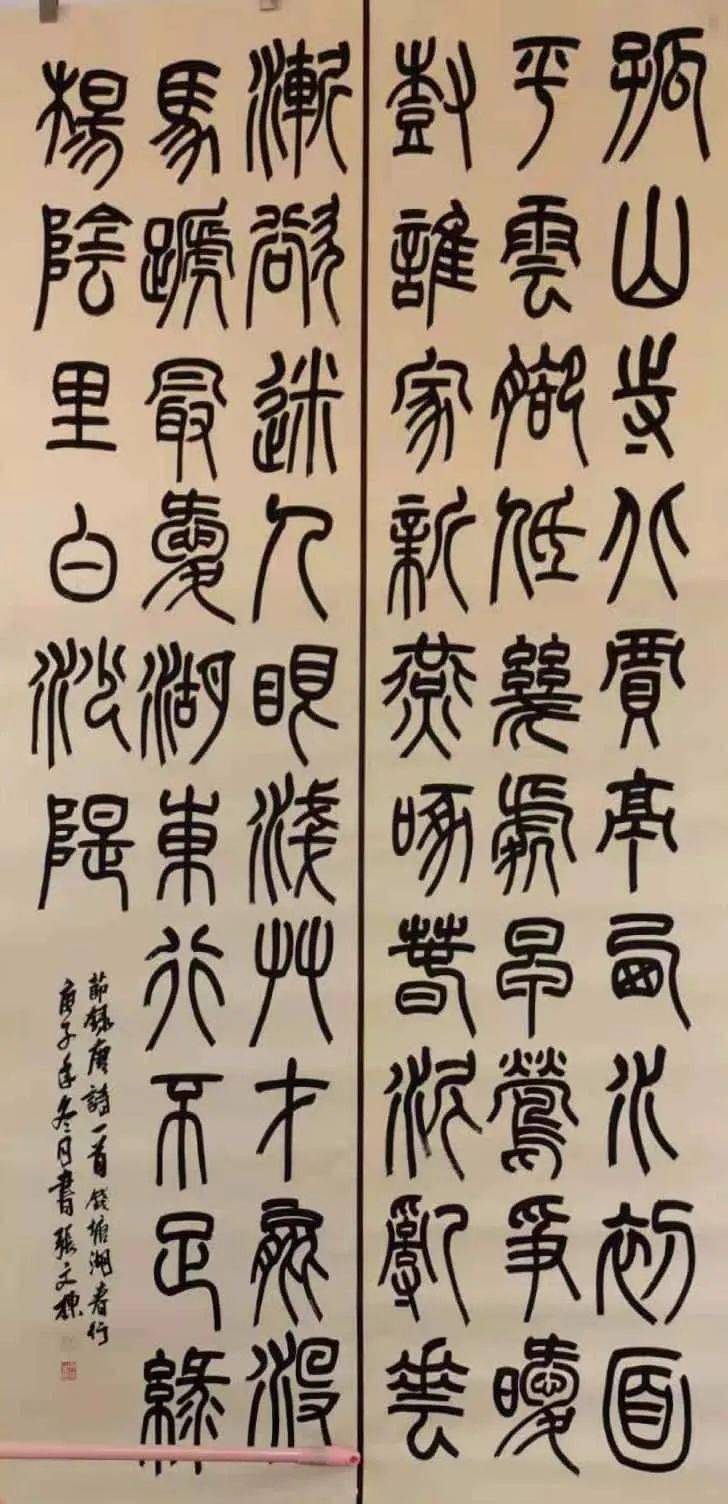 孤山寺北賈亭西水初面
平雲腳低幾處早鶯爭曖
樹誰家新燕啄春泥亂花
漸欲迷人眼淺草才能沒
馬蹄最愛湖東行不足綠
楊陰里白沙堤
節録唐詩一首錢塘湖春行
庚子年冬月書張文棟